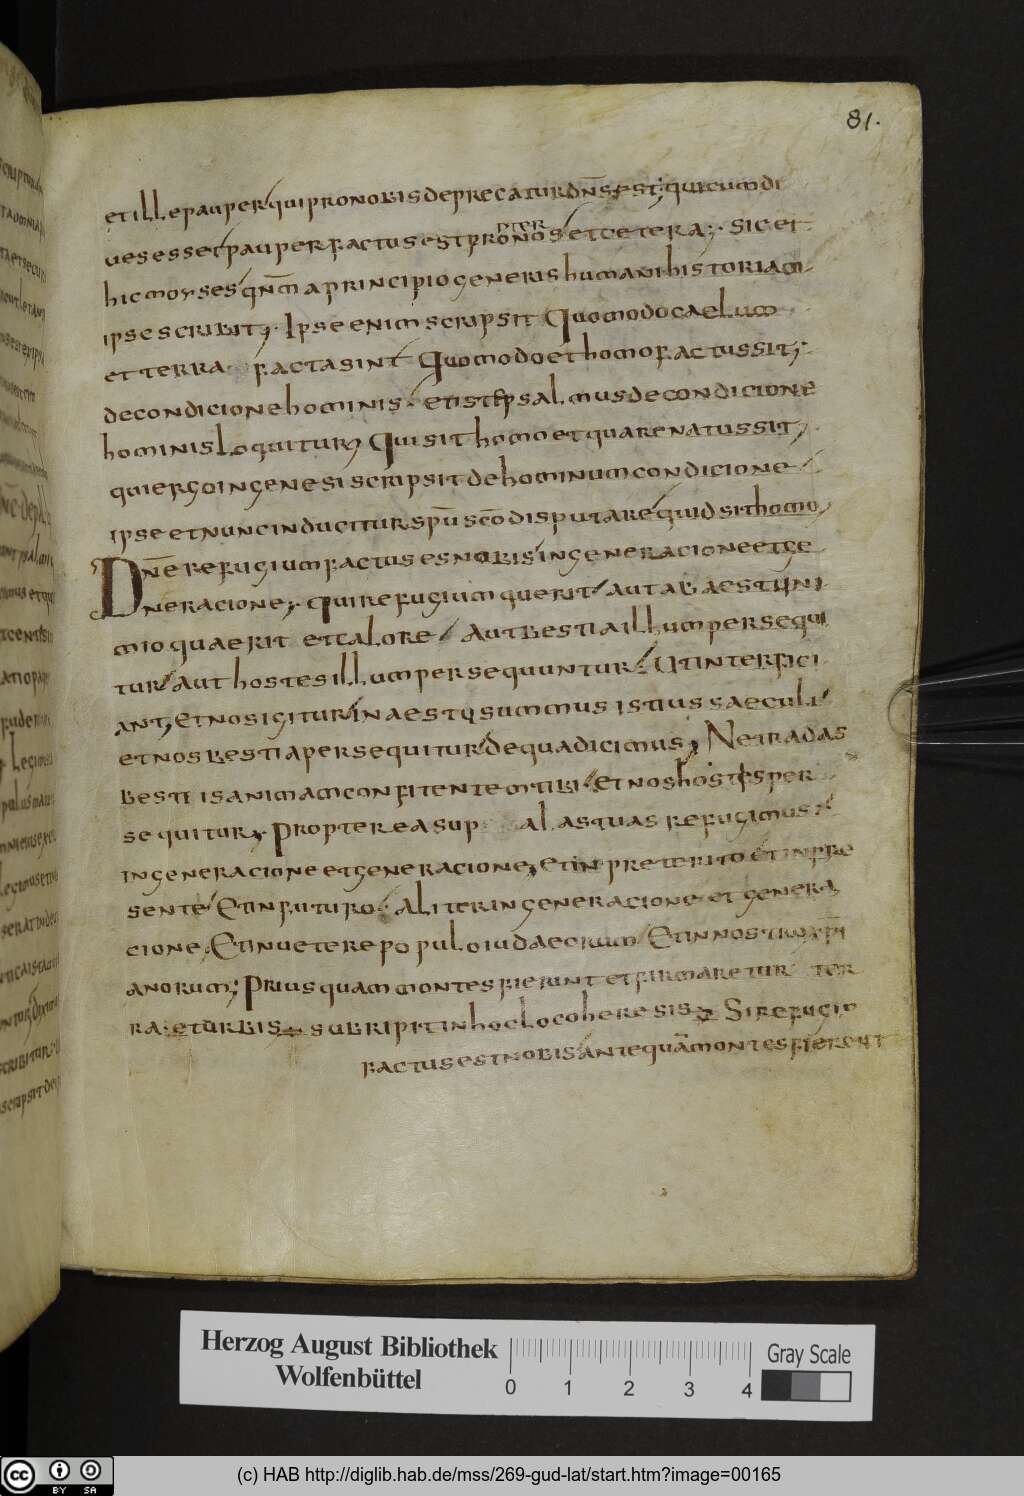 81.
et ille pauper qui pro nobis deprecatur dn̄s est; qui cum di
ues esset pauper factus est propter nos et cetera; Sic et
hic moyses qn̄m a principio generis humani historiam
ipse scribit; Ipse enim scripsit Quomodo caelum
et terra facta sint Quomodo et homo factus sit;
de condicione hominis. et iste psalmus de condicione
hominis loquitur; Qui sit homo et quare natus sit,
qui ergo in genesi scripsit de hominum condicione
ipse et nunc inducitur sp̄u sc̄o disputare quid sit homo,
Dn̄e refugium factus es nobis in generacione et ge
neracione; qui refugium querit aut ab aestu ni
mio quaerit et calore Aut bestia illum persequi
tur aut hostes illum persequuntur. Ut interfici
ant, Et nos igitur in aestu summus istius saeculi
et nos bestia persequitur de qua dicimus; Ne tradas
bestiis animam confitentem tibi Et nos hostes per
sequitur, propterea sup alas tuas refugimus
in generacione et generacione, et in preterito et in pre
sente Et in futuro. Aliter in generacione et genera
cione, Et in uetere populo iudaeorum Et in nostro xp̄i
anorum; Priusquam montes fierint et firmaretur ter
ra et urbis subripit in hoc loco heresis Si refugiu
factus est nobis antequā montes fierent
Herzog August Bibliothek
Wolfenbüttel
0 1 2 3 4
Gray Scale
cc BY SA
(c) HAB http://diglib.hab.de/mss/269-gud-lat/start.htm?image=00165